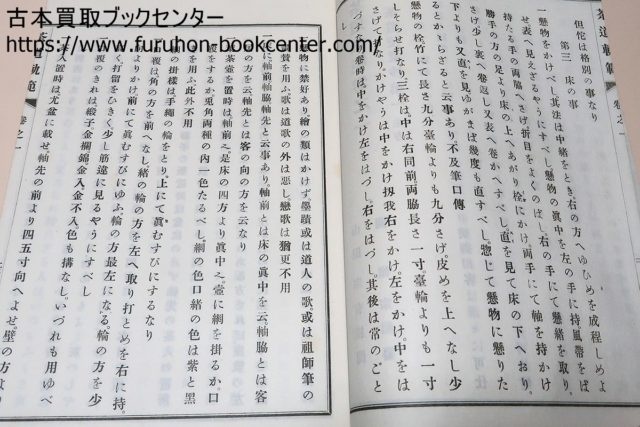 古本買取ブックセンター
https://www.furuhon-bookcenter.com/
茶道軌範
但侘は格別の事なり
第三 床の事
一懸物をかけべし其法は中緒をとき右の方へゆひめを成程しめよ
せ表へ見えざるやうにすべし懸物の眞中を左の手に持風帶をば
持たる手の兩脇へさげ折目をよくのばし右の手にて懸緒を取り、
勝手の方の足より床の上へあがり栓にかけ兩手にて軸を持かけ
さげ少し裏へ卷返し又表へ卷かへすべし直を見て床の下へおり、
下よりも又直を見ゆがまば幾度も直すべし惣じて懸物に懸りた
とかゝらざると云事あり不及筆口傳
懸物の栓竹にて長さ九分臺輪よりも九分さげ皮めを上へなし少
しそらせ打なり三栓は中は右同前兩脇長さ一寸臺輪よりも一寸
さげて打なりかけやうは中をかけ扨我右をかけ左をかけ、中をは
づす卷時は中をかけ左をはづし、右をはづし、其後は常のごと
茶道軌範 卷之一
懸物に禁好あり繪の類はかけず墨蹟或は道人の歌或は祖師筆の
賛を用ふ歌は道歌の外は惡し戀歌は猶更不用
一床に軸前軸脇軸先と云事あり、軸前とは床の眞中を云軸脇とは客
の方を云軸先とは客の向の方を云なり
一茶壺を置時は軸前之是床の四方より眞中之壺に網を掛るか、口
覆をするか兎角兩種の内一色たるべし網の色口緒の色は紫と黑
を用ふ、此外不用
網の掛樣は手繩の輪をとり、上にて眞むすびにするなり
口覆は角の方を前へなし緒の輪の方を左へ取り打とめを右に持、
うしろよりかけ前にて眞むすびにゆふ輪の方最左になる輪の方を少
く打留をひきく少し筋違に見るやうにすべし
口覆のきれは緞子金襴錦金入金不入色も構なし、いづれも用ゆべ
茶入置時は尤盆に載せ軸先の前より四五寸向へよせ壁の方より